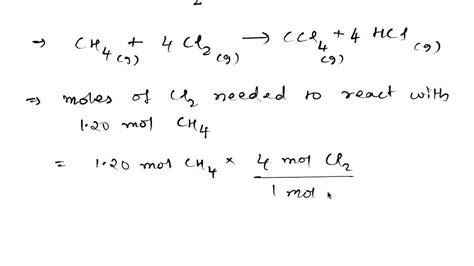 2
⇒ CH₄(g) + 4 Cl₂(g) → CCl₄(g) + 4 HCl(g)
⇒ moles of Cl₂ needed to react with
1.20 mol CH₄
= 1.20 mol CH₄ × 4 mol Cl₂
1 mol